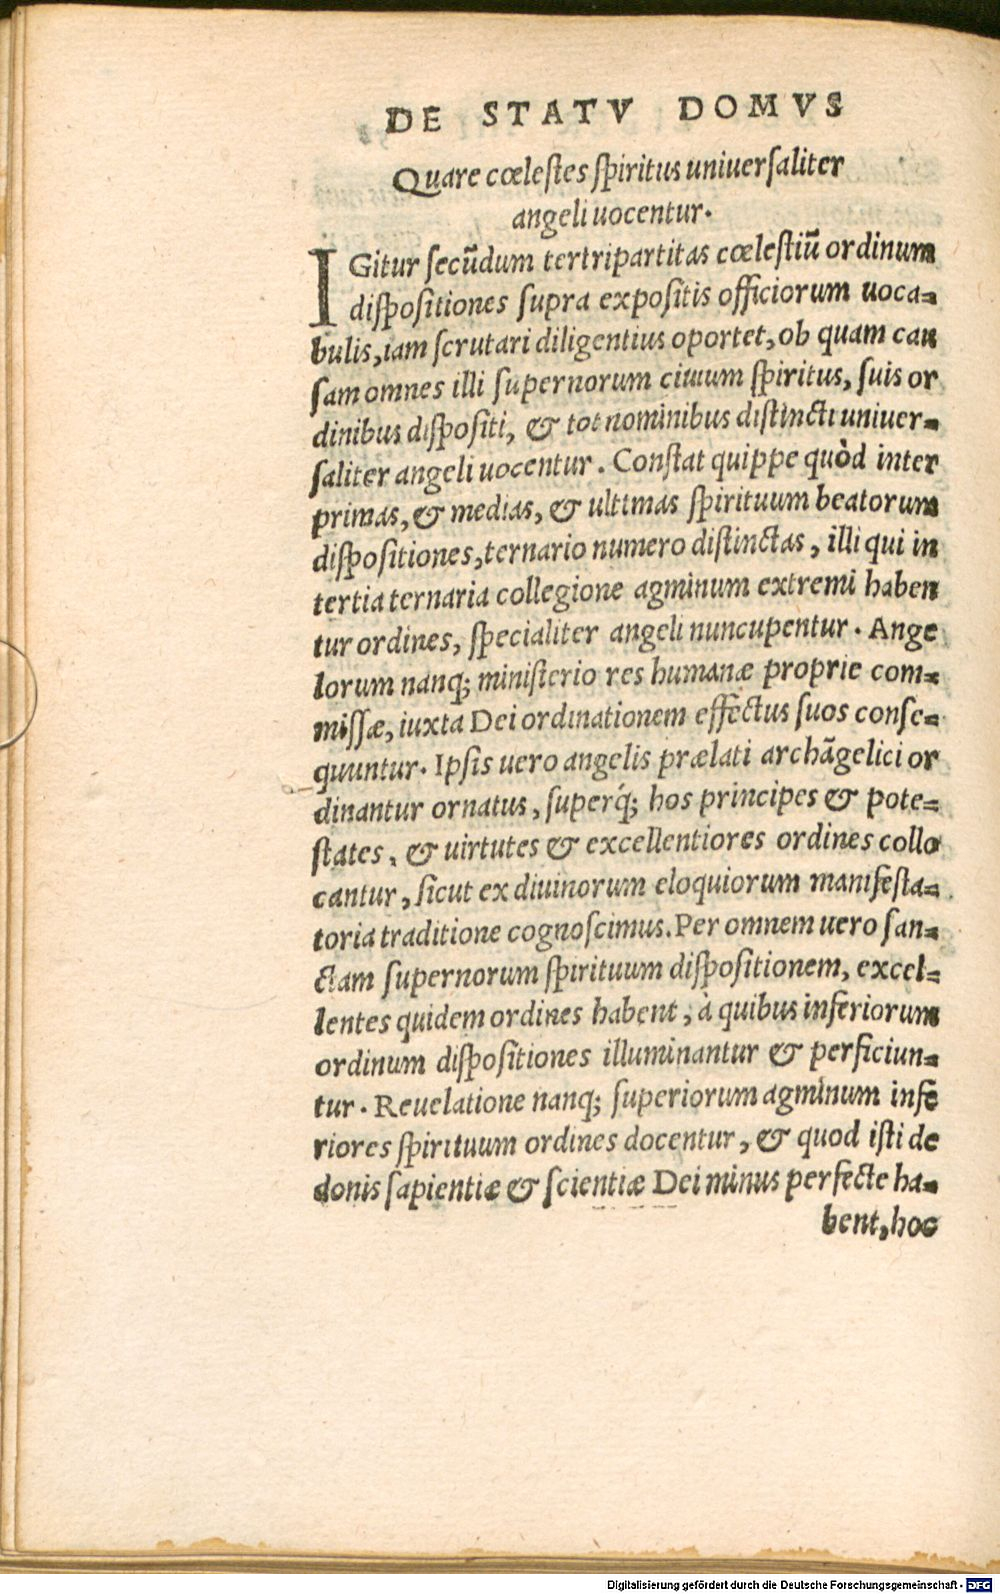 DE STATV DOMVS
Quare cœlestes spiritus uniuersaliter
angeli uocentur.
IGitur secūdum tertripartitas cœlestiū ordinum
dispositiones supra expositis officiorum uoca=
bulis, iam scrutari diligentius oportet, ob quam cau
sam omnes illi supernorum ciuium spiritus, suis or
dinibus dispositi, & tot nominibus distincti uniuer=
saliter angeli uocentur. Constat quippe quòd inter
primas, & medias, & ultimas spirituum beatorum
dispositiones, ternario numero distinctas, illi qui in
tertia ternaria collegione agminum extremi haben
tur ordines, specialiter angeli nuncupentur. Ange
lorum nanq; ministerio res humanæ proprie com=
missæ, iuxta Dei ordinationem effectus suos conse=
quuntur. Ipsis uero angelis prælati archāgelici or
dinantur ornatus, superq́; hos principes & pote=
states, & uirtutes & excellentiores ordines collo
cantur, sicut ex diuinorum eloquiorum manifesta=
toria traditione cognoscimus. Per omnem uero san=
ctam supernorum spirituum dispositionem, excel=
lentes quidem ordines habent, à quibus inferiorum
ordinum dispositiones illuminantur & perficiun=
tur. Reuelatione nanq; superiorum agminum infe
riores spirituum ordines docentur, & quod isti de
donis sapientiæ & scientiæ Dei minus perfecte ha=
bent, hoc
Digitalisierung gefördert durch die Deutsche Forschungsgemeinschaft - DFG